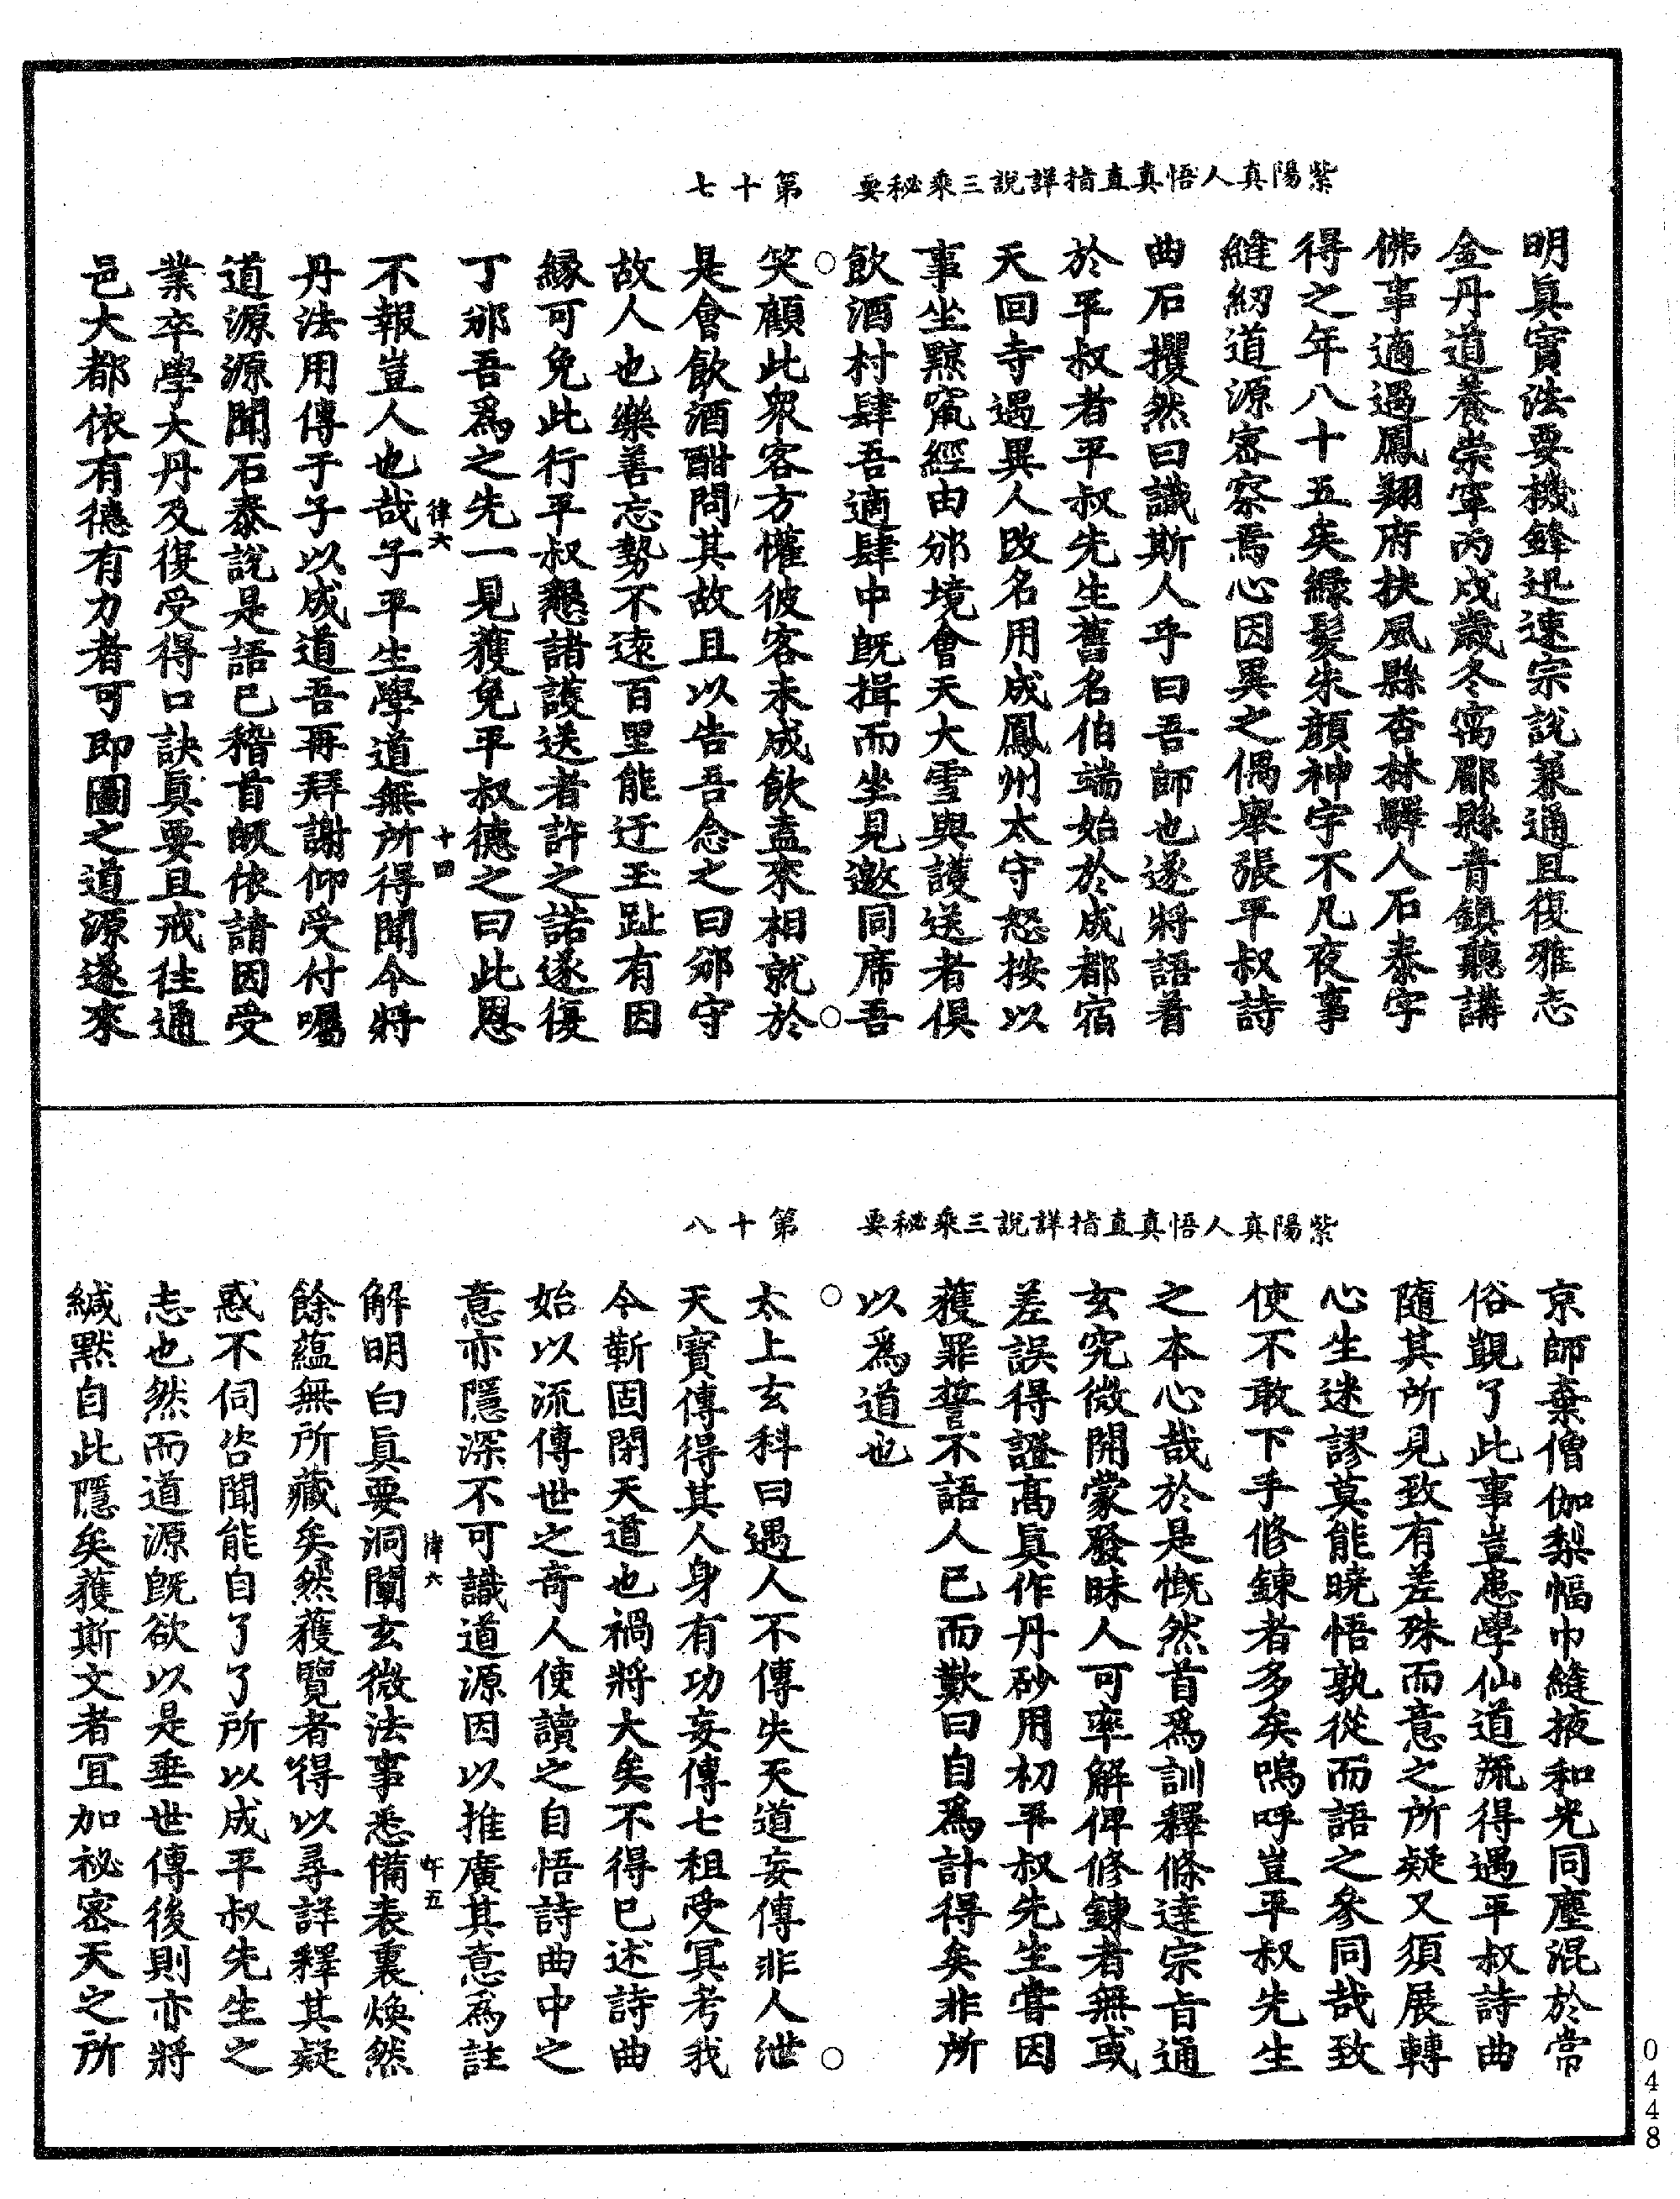 紫陽真人悟真直指詳說三乘秘要　第十七
明眞實法要機鋒迅速宗說兼通且復雅志
金丹道養崇寧丙戌歲冬寓郿縣青鎮聽講
佛事適遇鳳翔府扶風縣杏林驛人石泰字
得之年八十五矣綠髮朱顏神宇不凡夜事
縫紉道源密察焉心因異之偶舉張平叔詩
曲石攫然曰識斯人乎曰吾師也遂將語着
於平叔者平叔先生舊名伯端始於成都宿
天回寺遇異人改名用成鳳州太守怒按以
事坐黥竄經由邠境會天大雪與護送者俱
飲酒村肆吾適肆中旣揖而坐見邀同席吾
笑顧此衆客方懽彼客未成飲盍來相就於
是會飲酒酣問其故且以告吾念之曰邠守
故人也樂善忘勢不遠百里能迂玉趾有因
緣可免此行平叔懇諸護送者許之諾遂復
丁邠吾爲之先一見獲免平叔德之曰此恩
律六　十四
不報豈人也哉子平生學道無所得聞今將
丹法用傳于子以成道吾再拜謝仰受付囑
道源源聞石泰說是語已稽首皈依請因受
業卒學大丹及復受得口訣眞要且戒往通
邑大都依有德有力者可即圖之道源遂來
紫陽真人悟真直指詳說三乘秘要　第十八
京師棄僧伽梨幅巾縫掖和光同塵混於常
俗覬了此事豈患學仙道流得遇平叔詩曲
隨其所見致有差殊而意之所疑又須展轉
心生迷謬莫能曉悟孰從而語之參同哉致
使不敢下手修鍊者多矣嗚呼豈平叔先生
之本心哉於是慨然首爲訓釋條達宗旨通
玄究微開蒙發昧人可率解俾修鍊者無或
差誤得證高眞作丹砂用初平叔先生嘗因
獲罪誓不語人已而歎曰自爲計得矣非所
以爲道也
太上玄科曰遇人不傳失天道妄傳非人泄
天寶傳得其人身有功妄傳七祖受冥考我
今靳固閉天道也禍將大矣不得已述詩曲
始以流傳世之奇人使讀之自悟詩曲中之
意亦隱深不可識道源因以推廣其意爲註
律六　午五
解明白眞要洞闡玄微法事悉備表裏煥然
餘蘊無所藏矣然獲覽者得以尋詳釋其疑
惑不伺咨聞能自了了所以成平叔先生之
志也然而道源旣欲以是垂世傳後則亦將
緘默自此隱矣獲斯文者宜加祕密天之所
0448